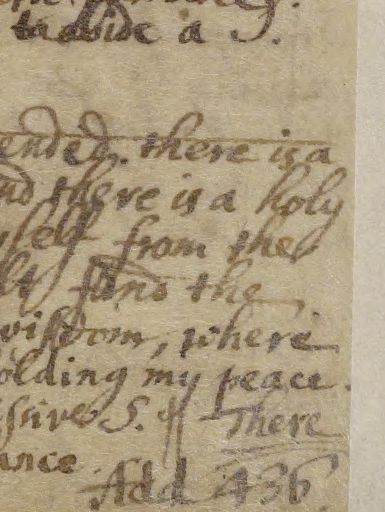 to abide a S.
ended. there is a
nd there is a holy
self from the
find the
wisdom, where
olding my peace.
ssive S. There
ance.
Add 436